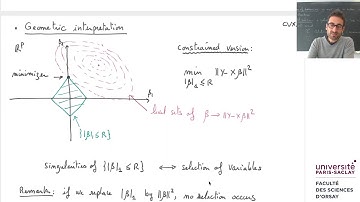 • Geometric interpretation
CVX
ℝᵖ
β₂
Constrained version:
minimizer
min ‖Y-Xβ‖²
|β|₁≤R
β₁
level sets of β→‖Y-Xβ‖²
{|β|₁≤R}
Singularities of {|β|₁≤R} ↔ selection of variables
Remark: if we replace |β|₁ by ‖β‖², no selection occurs
université
PARIS-SACLAY
FACULTÉ
DES SCIENCES
D'ORSAY